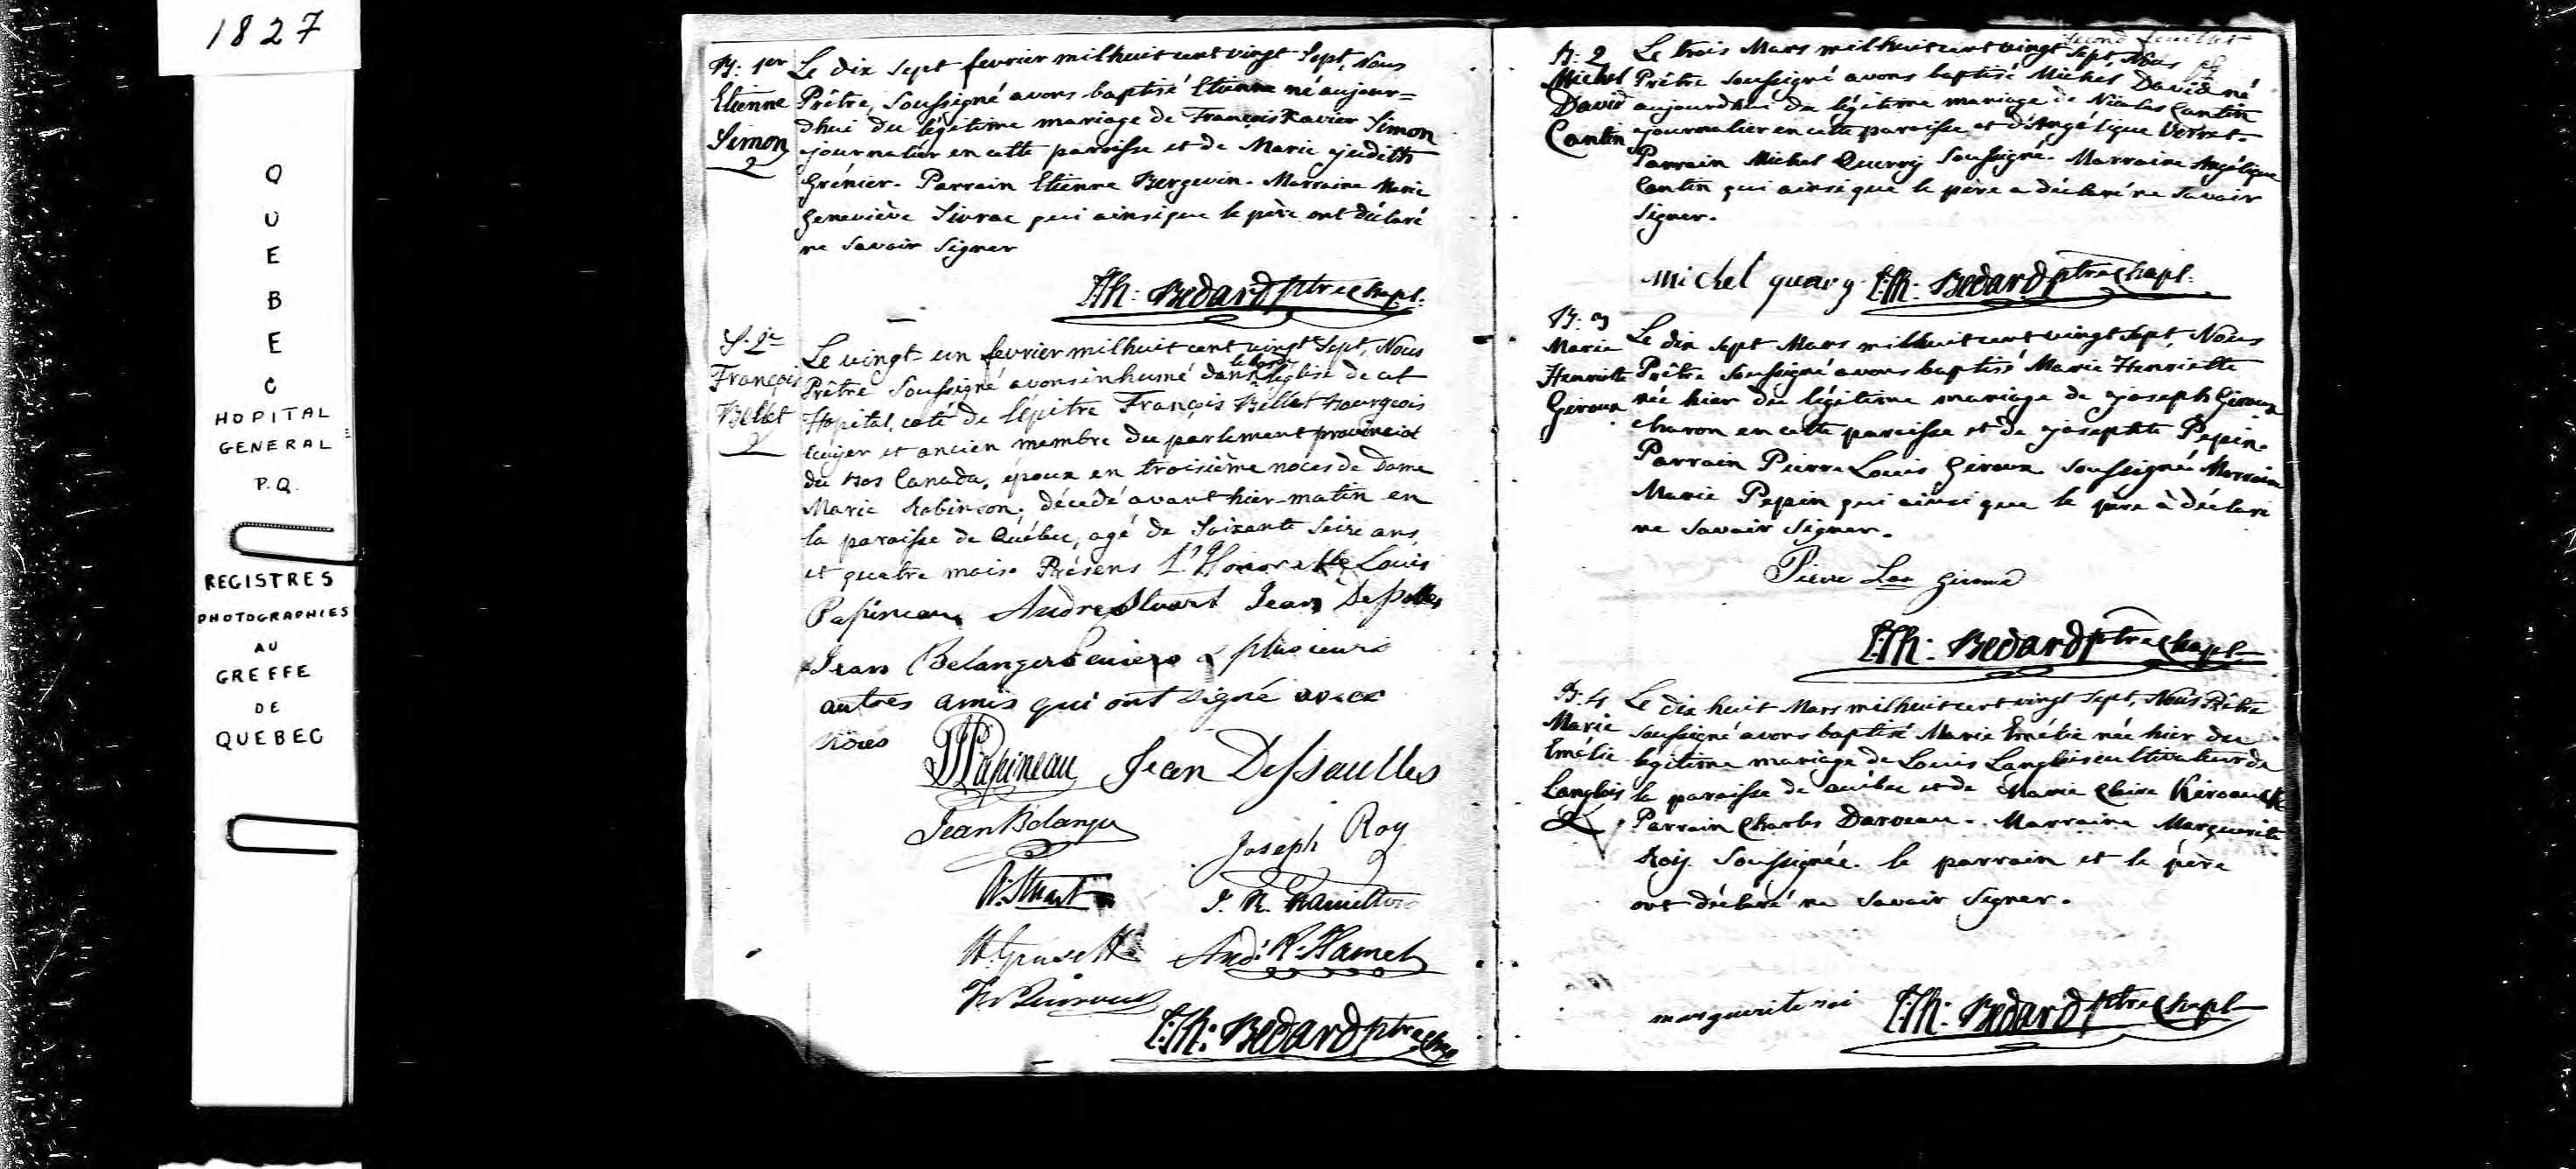 1827
QUEBEC
HOPITAL
GENERAL
P.Q.
REGISTRES
PHOTOGRAPHIES
AU
GREFFE
DE
QUEBEC
B: 1er
Etienne
Simon
2
Le dix sept fevrier mil huit cent vingt Sept, Nous
Prêtre, Soussigné avons baptisé Etienne né aujour=
dhui du légitime mariage de François Xavier Simon
journalier en cette paroisse et de Marie judith
Grénier. Parrain Etienne Bergevin. Marraine Marie
Geneviève Sivrac qui ainsi que le père ont déclaré
ne Savoir Signer
T:Th: Bedard ptre Chapl.
S. 2e
François
Bellet
2
Le vingt-un fevrier mil huit cent vingt Sept, Nous
Prêtre Soussigné avons inhumé dans l'église de cet
Hopital, coté de l'épitre François Bellet Bourgeois
Ecuyer et ancien membre du parlement provincial
du bas Canada, époux en troisième noces de Dame
Marie Robinson, décédé avant hier matin en
la paroisse de Québec, agé de Soixante Seize ans,
et quatre mois. Présens L'Honorable Louis
Papineau, Andre Stuart Jean Dessolles
Jean Belanger Ecuiers & plusieurs
autres amis qui ont signé avec
nous
Papineau Jean Dessaulles
Jean Belanger
Joseph Roy
A. Stuart
And: R. Hamel
T:Th: Bedard ptre Chap
Second feuillet
B: 2
Michel
David
Cantin
Le trois Mars mil huit cent vingt Sept, Nous
Prêtre Soussigné avons baptisé Michel David né
aujourdhui du légitime mariage de Nicolas Cantin
journalier en cette paroisse et d'Angélique Verret.
Parrain Michel Querry Soussigné. Marraine Angélique
Cantin qui ainsi que le père a déclaré ne Savoir
Signer.
Michel query T:Th: Bedard ptre Chapl.
B: 3
Marie
Henriette
Giroux
Le dix Sept Mars mil huit cent vingt Sept, Nous
Prêtre Soussigné avons baptisé Marie Henriette
née hier du légitime mariage de joseph Giroux
charon en cette paroisse et de josephte Pepin.
Parrain Pierre Louis Giroux Soussigné Marraine
Marie Pepin qui ainsi que le père à déclaré
ne Savoir Signer.
Pierre Lou giroux
T:Th: Bedard ptre Chapl
B: 4
Marie
Emélie
Langlois
2
Le dix huit Mars mil huit cent vingt Sept, Nous Prêtre
Soussigné avons baptisé Marie Emélie née hier du
légitime mariage de Louis Langlois cultivateur de
la paroisse de Québec et de Marie Claire Kérouack
Parrain Charles Darveau. Marraine Marguerite
Roij Soussignée. le parrain et le père
ont déclaré ne Savoir Signer.
marguerite roi T:Th: Bedard ptre Chapl